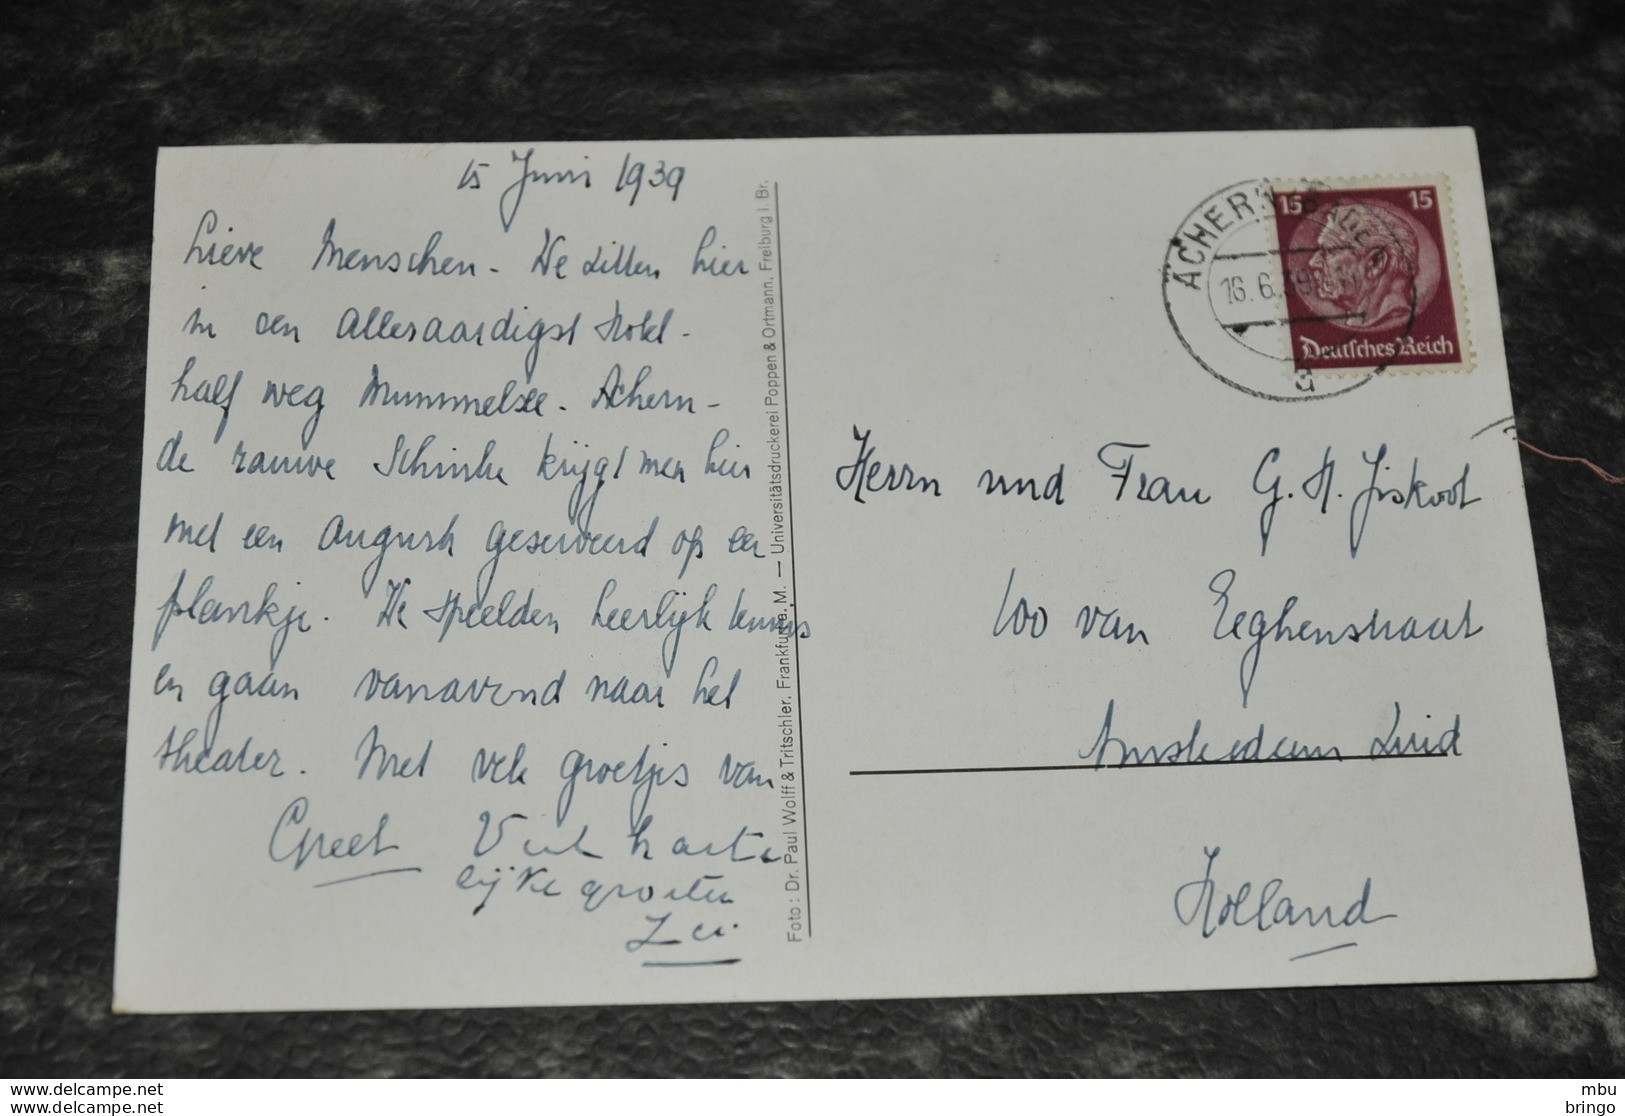 15 Juni 1939
Lieve Menschen. We zitten hier
in een alleraardigst Hotel.
half weg Mummelsee. Achern -
de rauwe Schinke krijgt men hier
met een augurk geserveerd op een
plankje. We speelden heerlijk tennis
en gaan vanavond naar het
theater. Met vele groetjes van
Greet Veel harte
lijke groeten
Foto: Dr. Paul Wolff & Tritschler, Frankfurt a. M. — Universitätsdruckerei Poppen & Ortmann, Freiburg i. Br.
ACHERN (BADEN)
16.6.39
a
15 15
Deutsches Reich
Herrn und Frau G. H. Jiskoot
100 van Eeghenstraat
Amsterdam Zuid
Holland
www.delcampe.net
www.delcampe.net
mbu
bringo